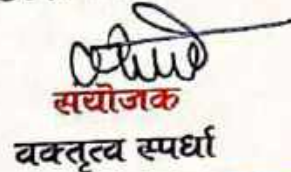 सयोजक
वक्तृत्व स्पर्धा